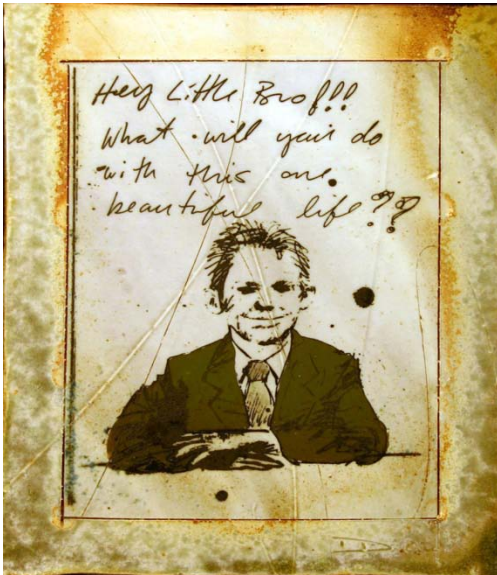 Hey Little Bro!!!
What will you do
with this one
beautiful life??